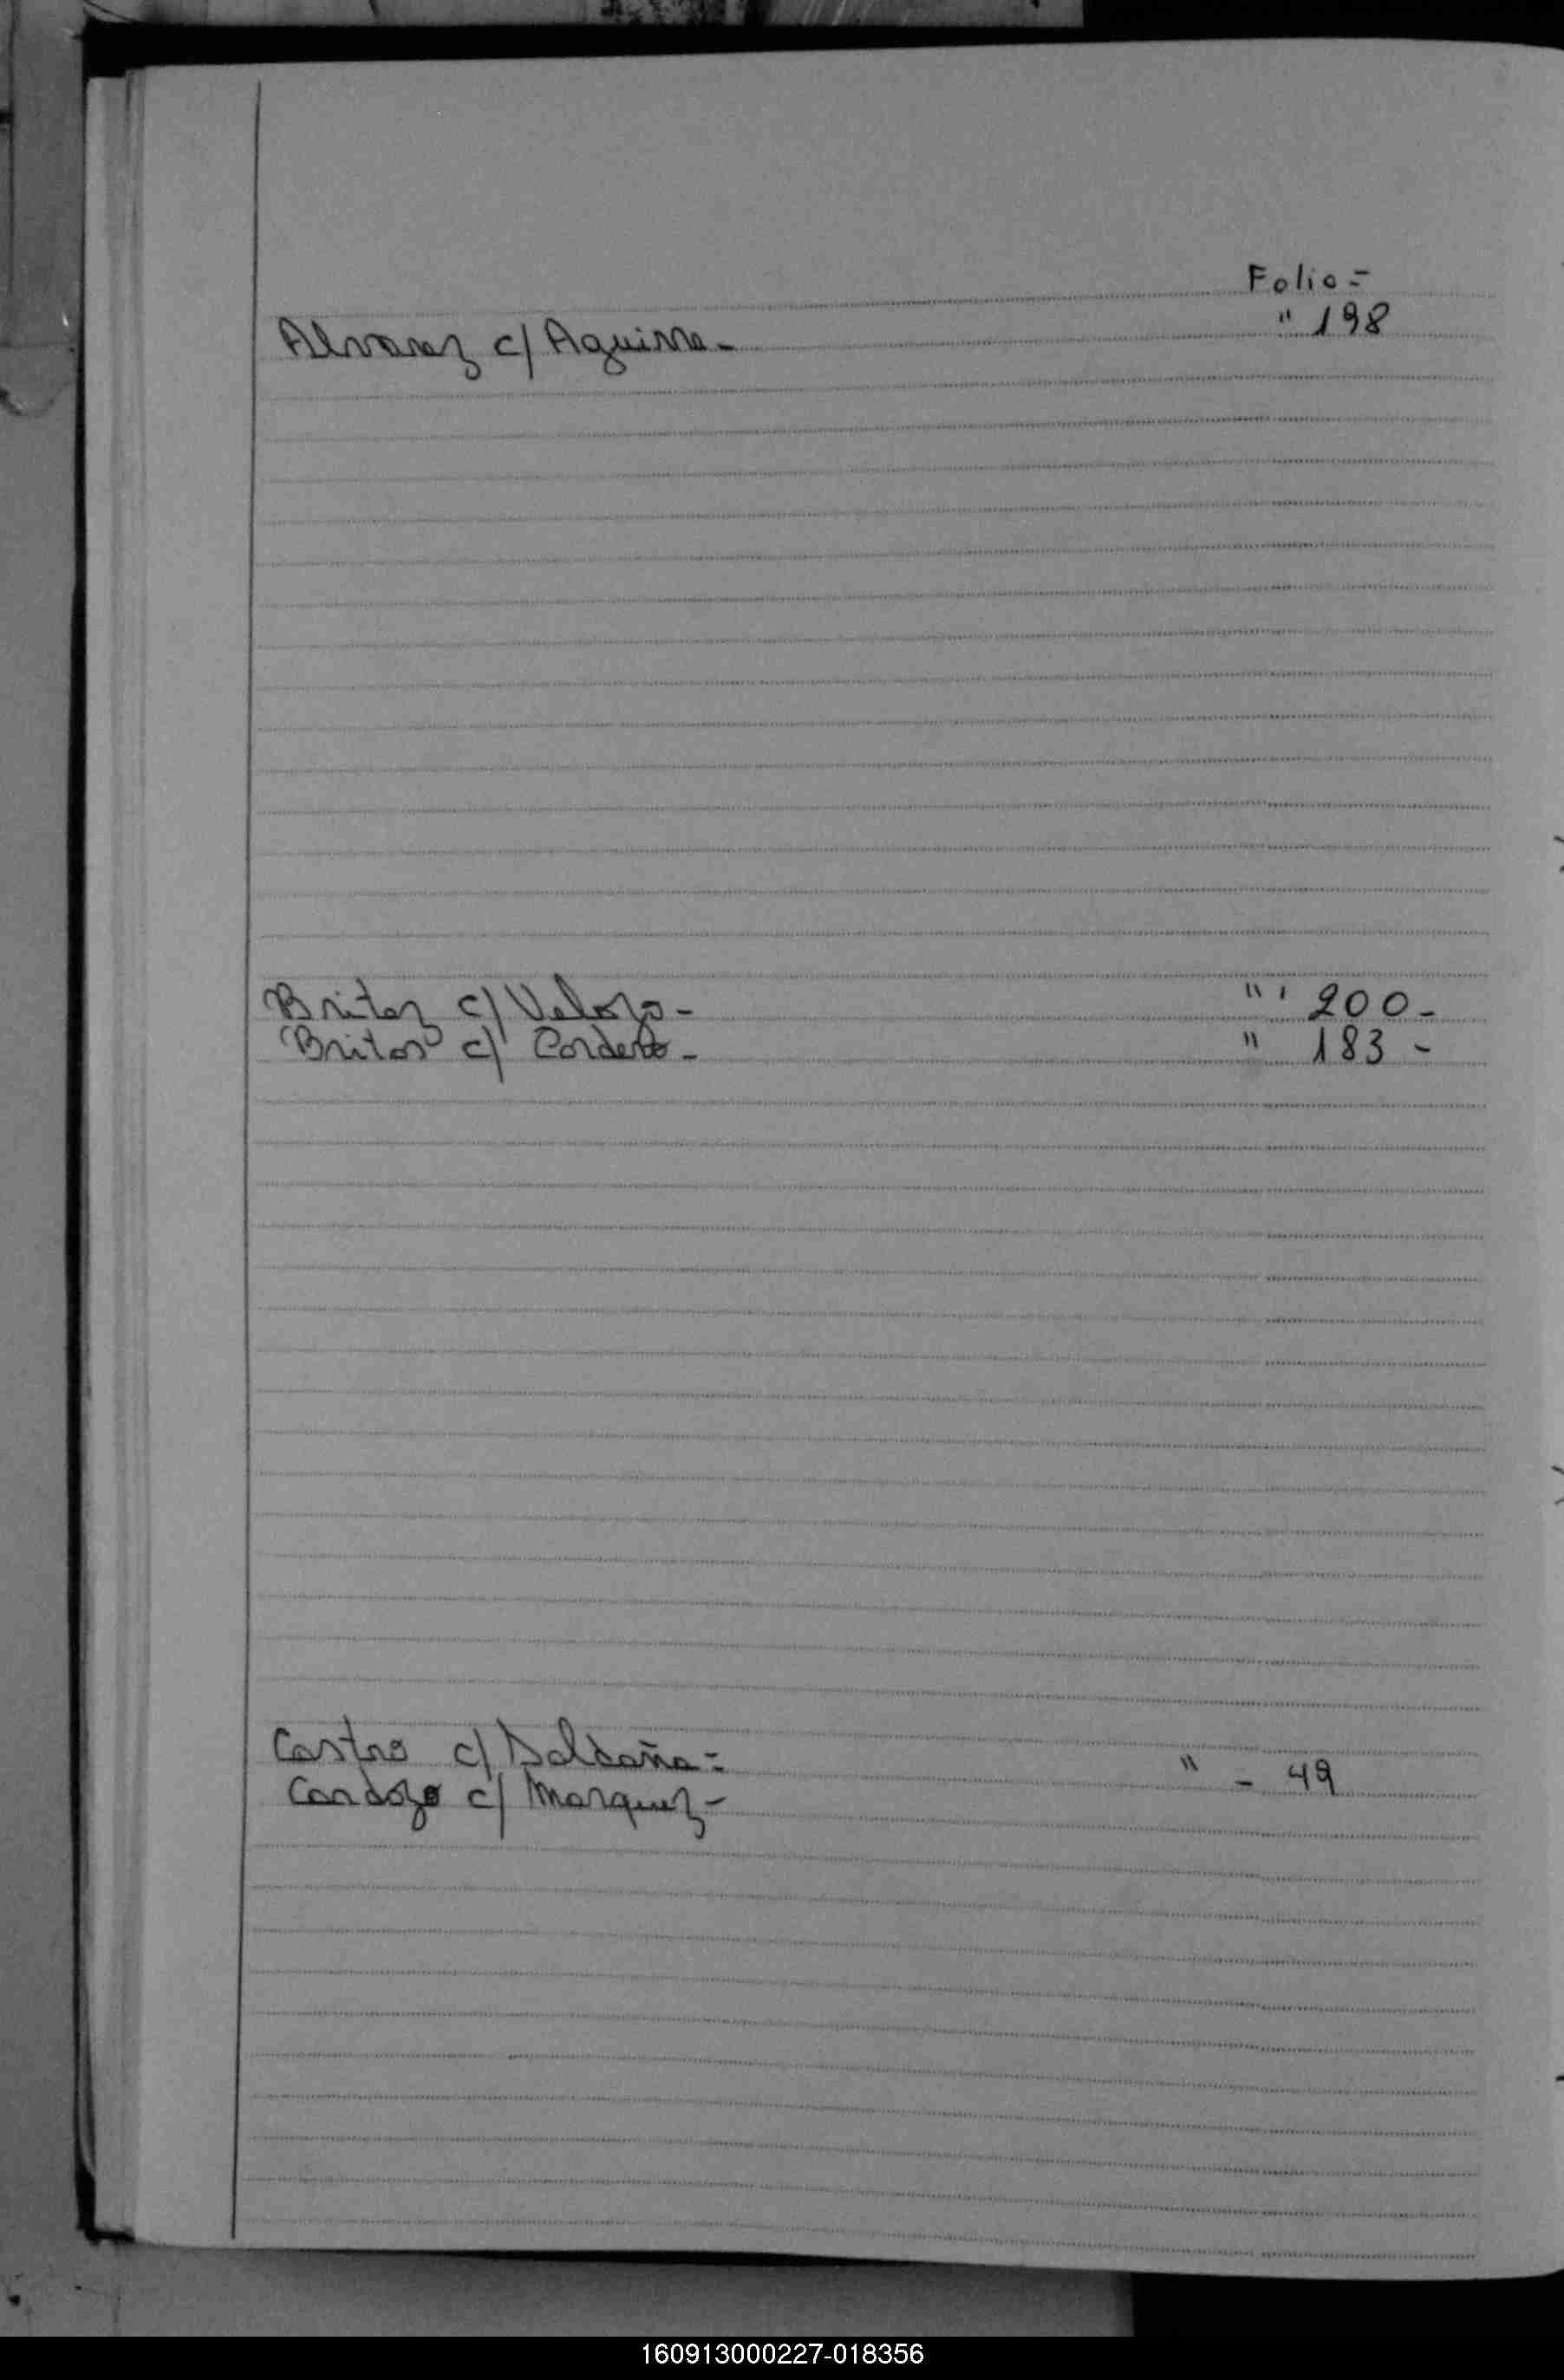 Folio =
Alvarez c/ Aguirre - " 198
Britez c/ Velozo - " 200 -
Britos c/ Cordero - " 183 -
Castro c/ Saldaña = " - 49
Cardozo c/ Marquez -
160913000227-018356